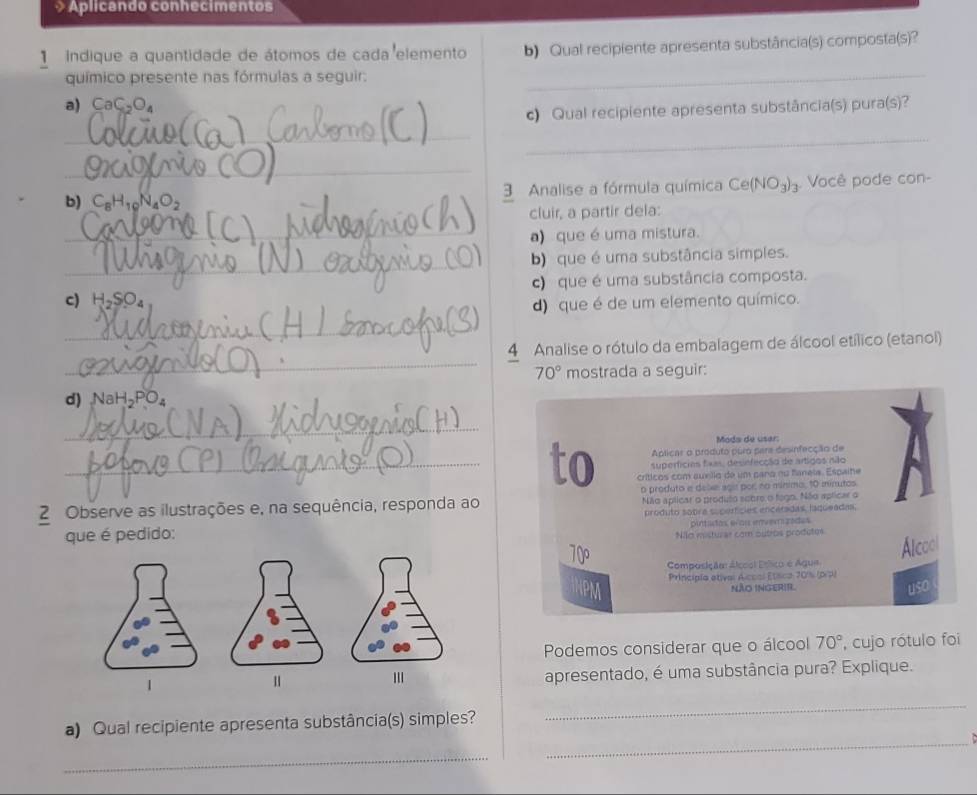 Aplicando conhecimentos
1 Indique a quantidade de átomos de cada elemento
químico presente nas fórmulas a seguir:
a) CaC₂O₄
Calcio (Ca) Carbono (C)
oxigênio (O)
b) C₈H₁₀N₄O₂
Carbono (C) hidrogênio (h)
(N) oxigênio (O)
c) H₂SO₄
Hidrogênio (H) (S)
oxigênio (O).
d) NaH₂PO₄
Sodio (NA) Hidrogênio (H)
(P) (O)
2 Observe as ilustrações e, na sequência, responda ao
que é pedido:
I II III
a) Qual recipiente apresenta substância(s) simples?
b) Qual recipiente apresenta substância(s) composta(s)?
c) Qual recipiente apresenta substância(s) pura(s)?
3 Analise a fórmula química Ce(NO₃)₃. Você pode con-
cluir, a partir dela:
a) que é uma mistura.
b) que é uma substância simples.
c) que é uma substância composta.
d) que é de um elemento químico.
4 Analise o rótulo da embalagem de álcool etílico (etanol)
70° mostrada a seguir:
to
Modo de usar:
Aplicar o produto puro para desinfecção de
superfícies fixas, desinfecção de artigos não
críticos com auxílio de um pano ou flanela. Espalhe
o produto e deixe agir por, no mínimo, 10 minutos.
Não aplicar o produto sobre o fogo. Não aplicar o
produto sobre superfícies enceradas, laqueadas,
pintadas e/ou envernizadas.
Não misturar com outros produtos.
70º
INPM
Composição: Álcool Etílico e Água.
Princípio ativo: Álcool Etílico 70% (p/p)
NÃO INGERIR.
A
Álcool
uso
Podemos considerar que o álcool 70°, cujo rótulo foi
apresentado, é uma substância pura? Explique.